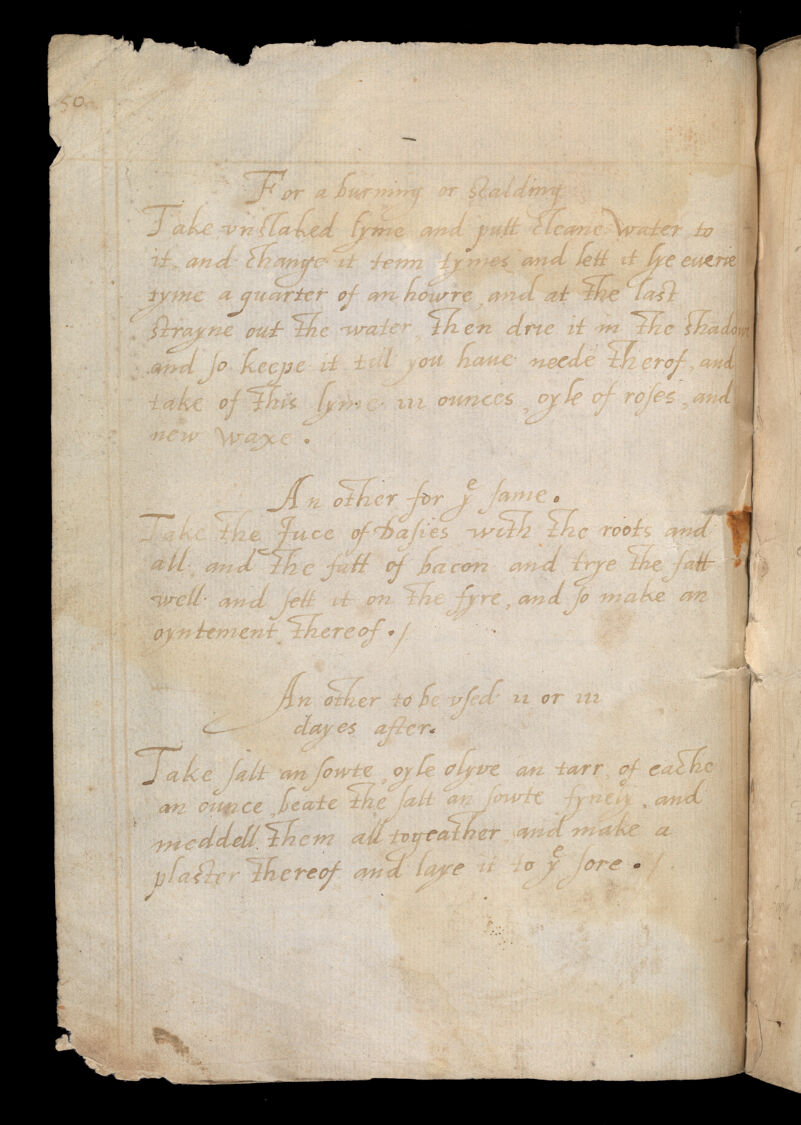 50
For a burning or scalding
Take vnslaked lyme and putt cleane water to
it, and change it tenn tymes and lett it lye euerie
tyme a quarter of an howre, and at the last
strayne out the water, then drie it in the shadow
and so keepe it till you haue neede therof, and
take of this lyme iii ounces, oyle of roses, and
new waxe .
An other for yᵉ same .
Take the Juce of Dasies with the roots and
all and the fatt of bacon and trye the fatt
well and sett it on the fyre, and so make an
oyntement thereof . /
An other to be vsed ii or iii
dayes after .
Take salt an sowte, oyle olyve an tarr, of eache
an ounce, beate the salt an sowte fynely, and
meddell them all togeather and make a
plaster thereof and laye it to yᵉ sore . /